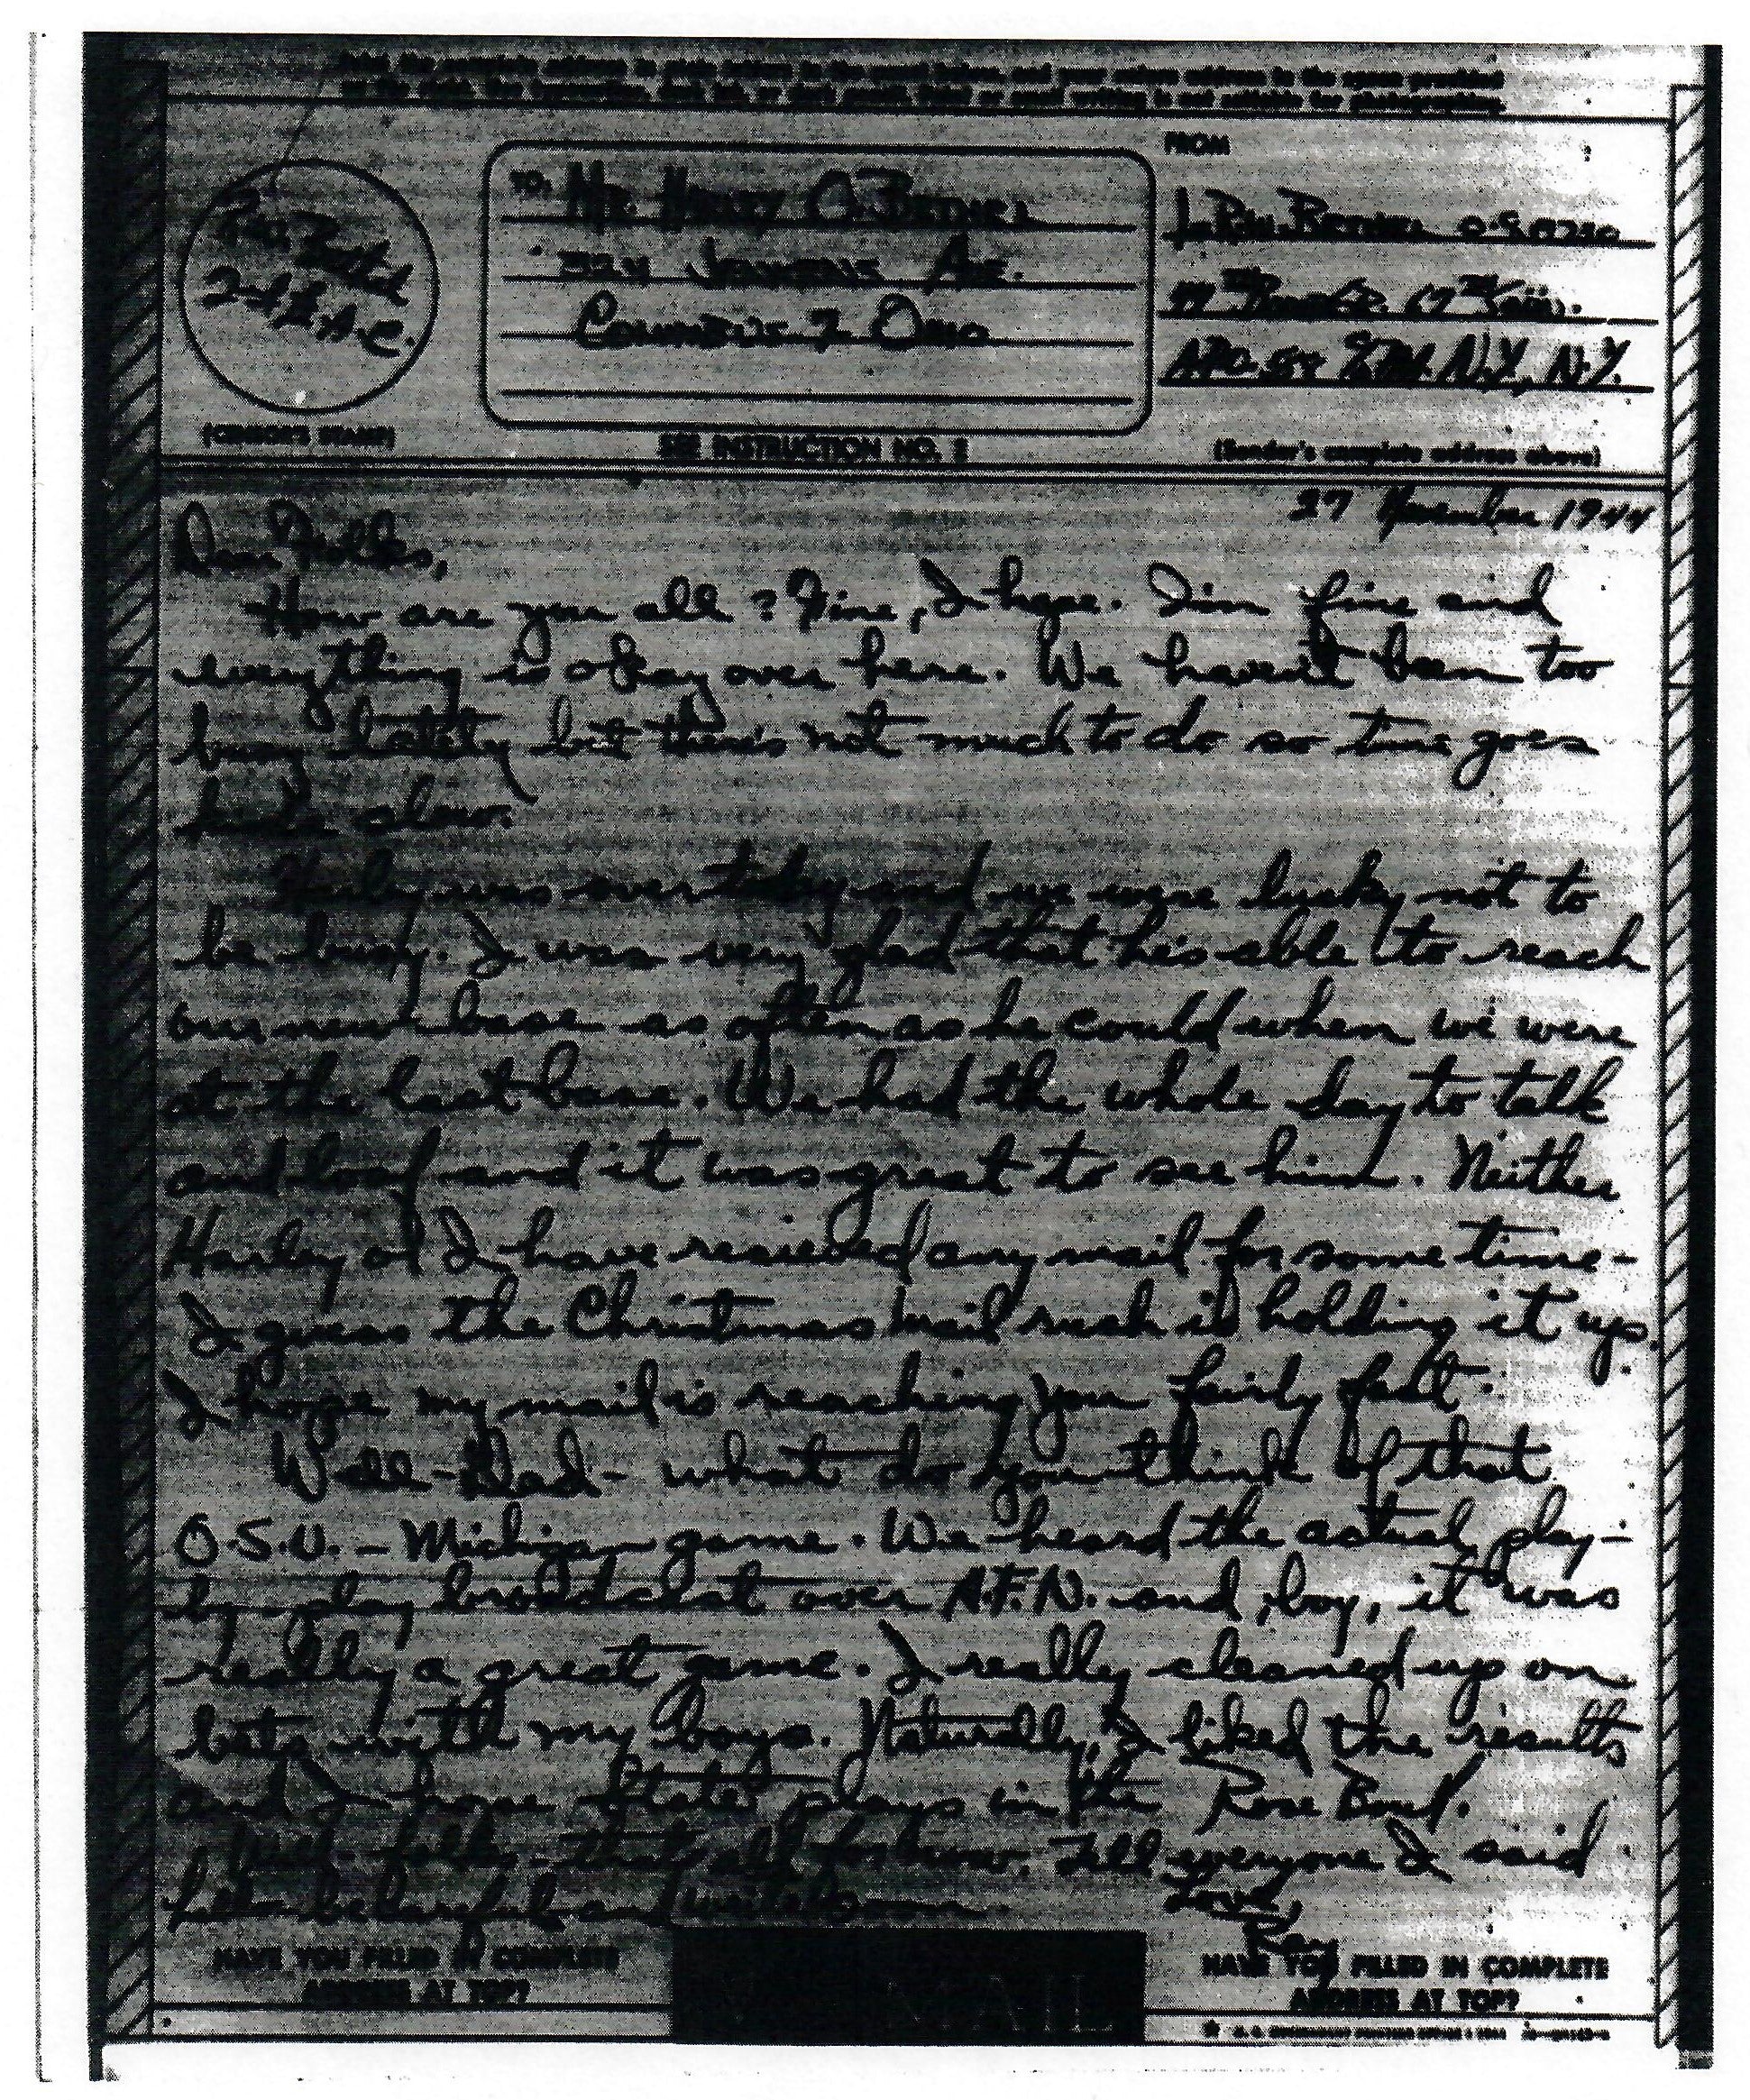 Print the complete address in plain letters in the panel below, and your return address in the space provided
FROM
TO. MR. HARLEY O. BETHEL
Lt. R.W. BETHEL
324 Ave.
COLUMBUS 7 OHIO
N.Y., N.Y.
Ray Bethel
2nd Lt. A.C.
(CENSOR'S STAMP)
SEE INSTRUCTION NO. 2
(Sender's complete address above)
27 November 1944
Dear Folks,
How are you all? Fine, I hope. I'm fine and
everything is okay over here. We haven't been too
busy lately but there's not much to do so time goes
kinda slow.
Harley was over today and we were lucky not to
be busy. I was very glad that he's able to reach
our new base as often as he could when we were
at the last base. We had the whole day to talk
and loaf and it was great to see him. Neither
Harley or I have recieved any mail for some time-
I guess the Christmas mail rush is holding it up.
I hope my mail is reaching you fairly fast.
Well-Dad- what do you think of that
O.S.U. - Michigan game. We heard the actual play-
by-play broadcast over A.F.N. and, boy, it was
really a great game. I really cleaned up on
bets with my boys. Naturally, I liked the results
and I hope State plays in the Rose Bowl.
Well folks, that's all for now. Tell everyone I said
hello be careful and write soon.
Love,
Ray
HAVE YOU FILLED IN COMPLETE
ADDRESS AT TOP?
MAIL
HAVE YOU FILLED IN COMPLETE
ADDRESS AT TOP?
U. S. GOVERNMENT PRINTING OFFICE : 1944